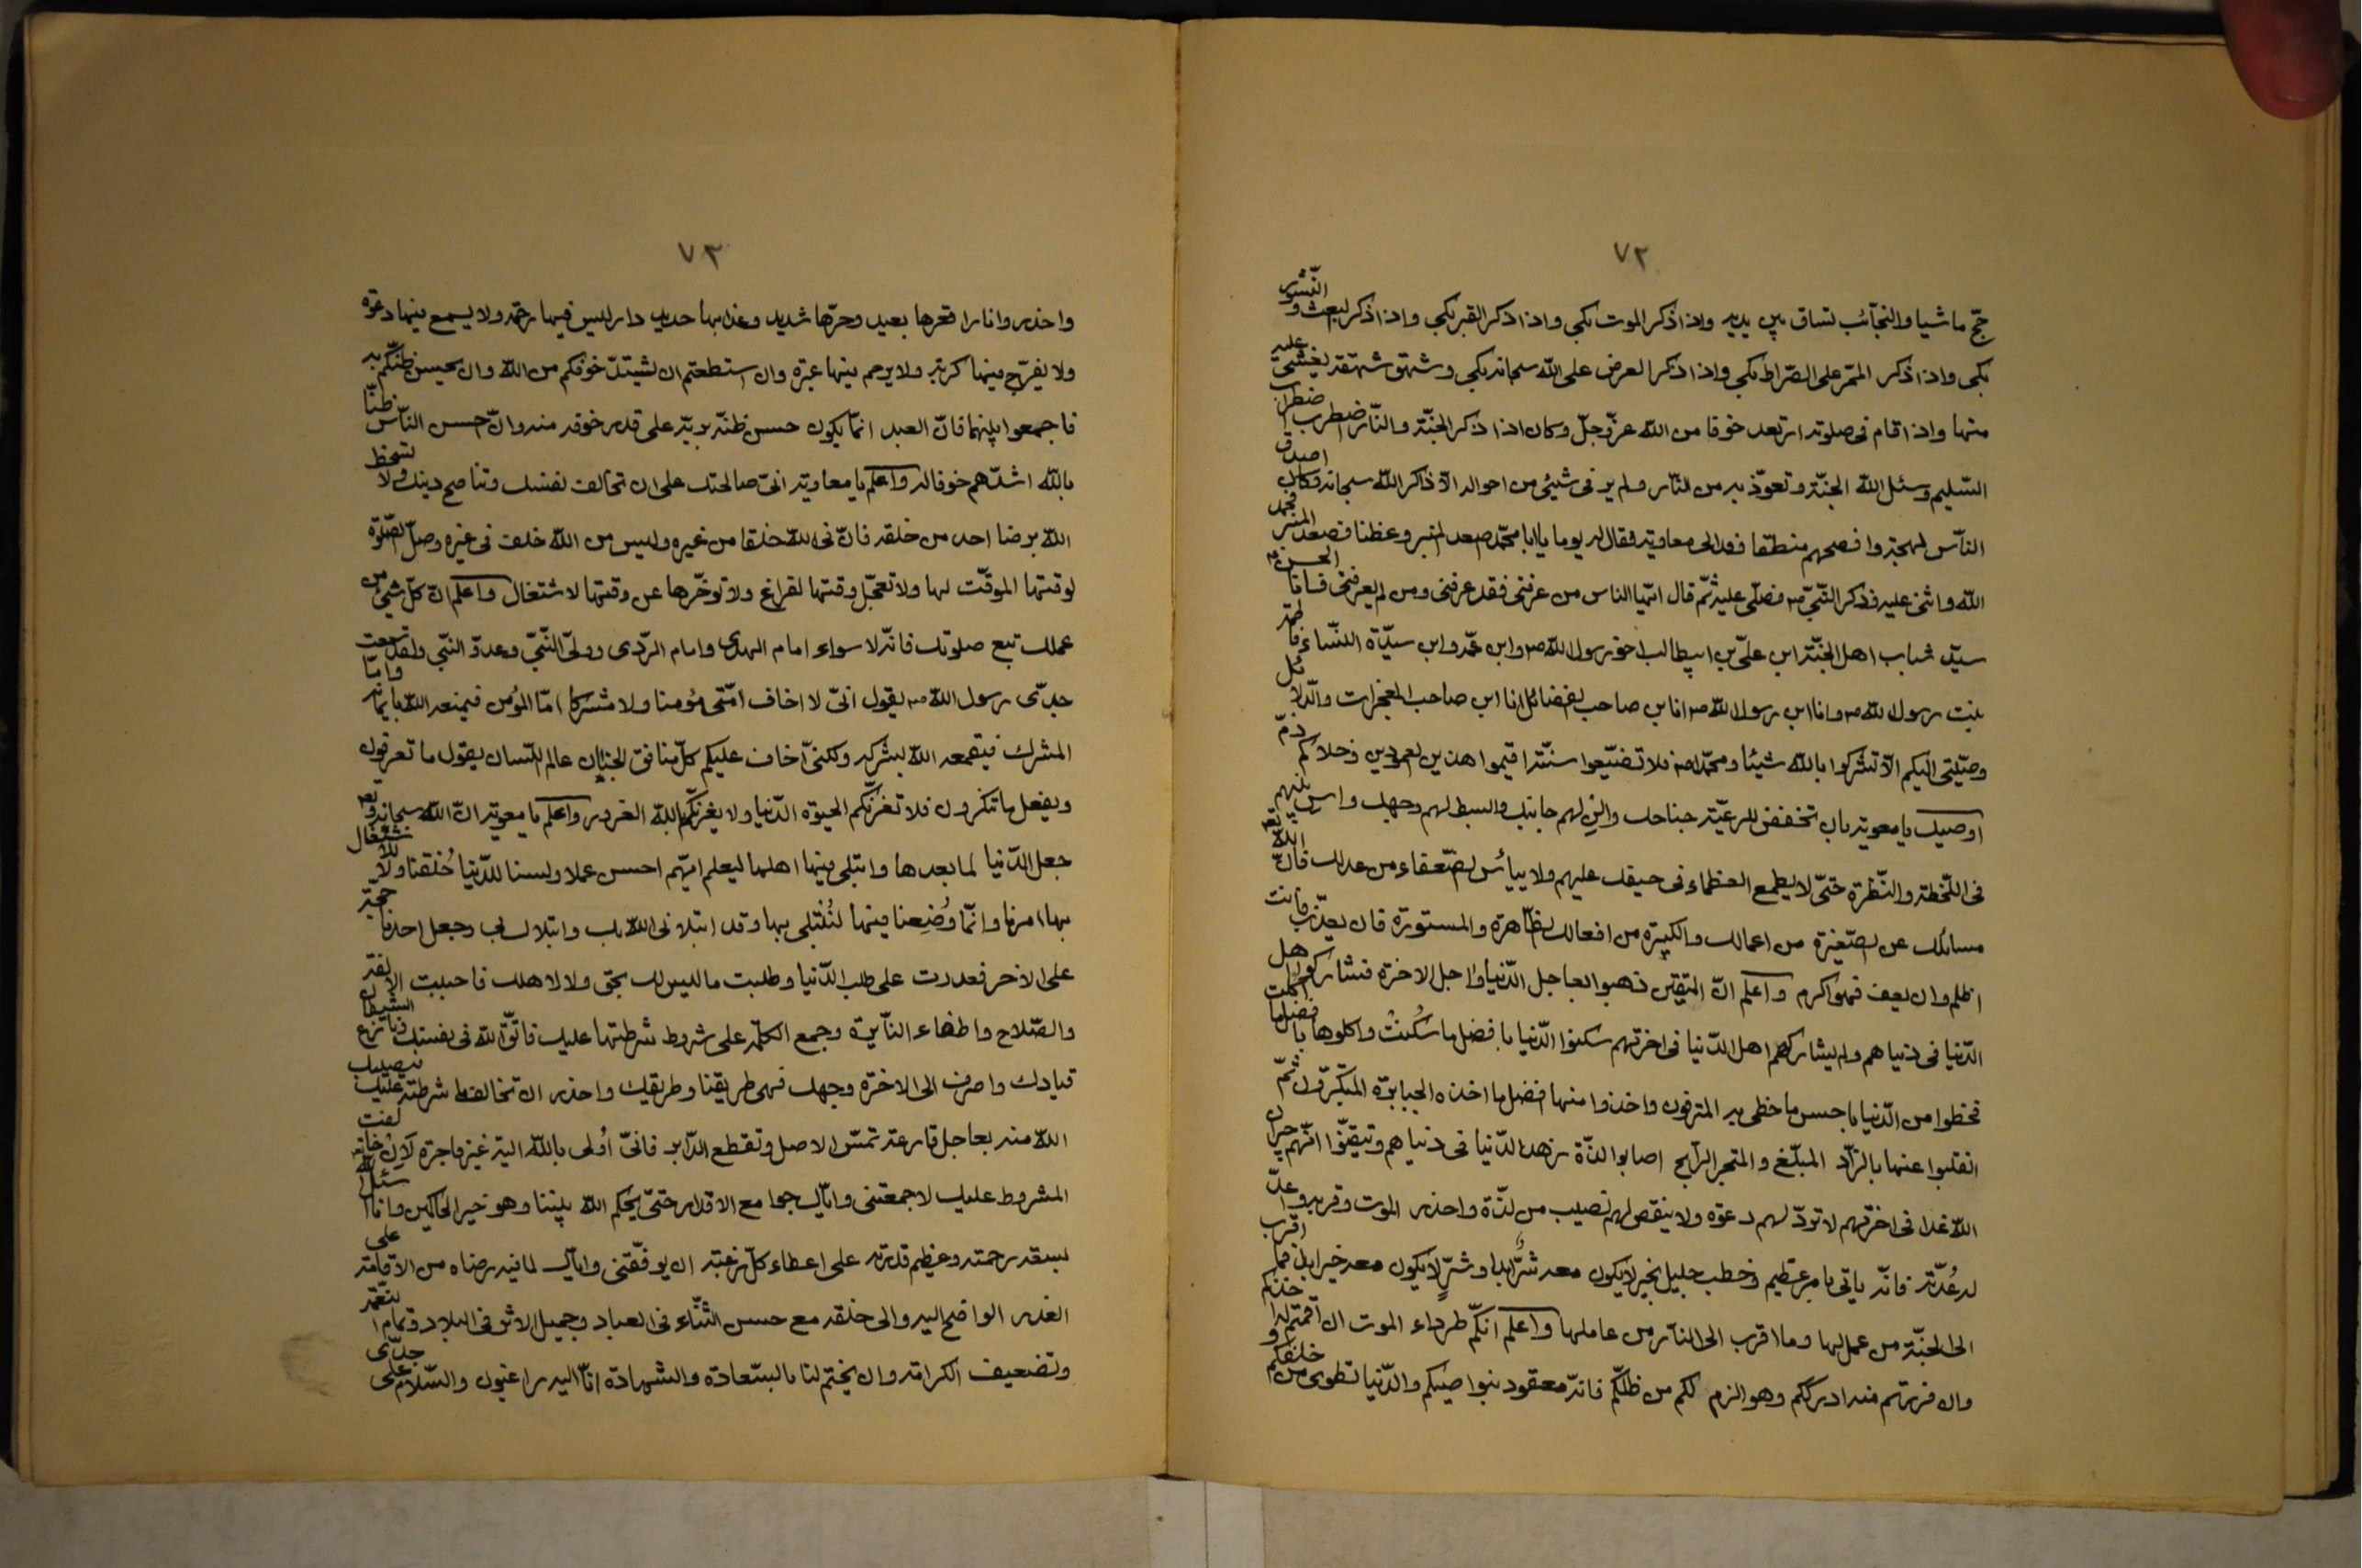 ٧٢
حجّ ماشيا والنجآئب تساق بين يديه واذا ذكر الموت بكى واذا ذكر القبر بكى واذا ذكر لبعث والنّشور
بكى واذا ذكر الممّر على الصّراط بكى واذا ذكر العرض على الله سبحانه بكى وشهق شهقة يغشى عليه
منها واذا قام فى صلوته ارتعد خوفا من الله عزّ وجلّ وكان اذا ذكر الجنّة والنّار اضطرب اضطراب
السّليم وسئل الله الجنّة وتعوّذ به من النّار ولم ير فى شيئ من احواله الّا ذاكر الله سبحانه وكان اصدق
النّاس لهجة وافصحهم منطقا فدالى معاوية فقال له يوما يا ابا محمّد اصعد المنبر وعظنا فصعد المنبر فحمد
الله واثنى عليه فذكر النّبىّ ص فصلّى عليه ثمّ قال ايّها الناس من عرفنى فقد عرفنى ومن لم يعرفنى فانا الحسن
سيّد شباب اهل الجنّة ابن علىّ بن ابيطالب اخو رسول الله ص وابن عمّه وابن سيّدة النّساء فاطمة
بنت رسول لله ص وانا ابن رسول الله ص انا بن صاحب لفضائل انا ابن صاحب المعجزات والدّلائل
وصيّتى اليكم الّا تشركوا بالله شيئا ومحمّدا ص فلا تضيّعوا سنّته اقيموا هذين لعمودين وخلاكم ذمّ
اوصيك يا معوية بان تخفض للرعيّة جناحك والن لهم جانبك وابسط لهم وجهك واس بينهم
فى اللّحظة والنّظرة حتّى لا يطمع العظماء فى حيفك عليهم ولا ييأس لضّعفاء من عدلك فانّ الله
مسائلك عن لصّغيرة من اعمالك والكبيرة من افعالك لظّاهرة والمستورة فان يعذّب فانت
اظلم وان يعف فهو اكرم واعلم انّ المتّقين ذهبوا بعاجل الدّنيا واجل الاخرة فشاركوا اهل
الدّنيا فى دنياهم ولم يشاركهم اهل الدّنيا فى اخرتهم سكنوا الدّنيا بافضل ما سُكنتْ واكلوها بافضل ما اكلت
فحظوا من الدّنيا باحسن ما حظى به المترفون واخذوا منها افضل ما اخذه الجبابرة المتكبّرون ثمّ
انقلبوا عنها بالزّاد المبلّغ والمتجر الرّابح اصابوا لذّة زهد الدّنيا فى دنياهم وتيقّنوا انّهم جيران
الله غدا فى اخرتهم لا تردّ لهم دعوة ولا ينقص لهم نصيب من لذّة واحذر الموت وقربه واعدّ
له عُدّته فانّه ياتى بامر عظيم وخطب جليل بخير لا يكون معه شرّ ابدا وشرّ لا يكون معه خير ابدا فما اقرب
الى الجنّة من عمل لها وما اقرب الى النار من عاملها واعلم انكّم طرداء الموت ان اقمتم له اخذكم
وان فررتم منه ادرككم وهو الزم لكم من ظلّكم فانّه معقود بنواصيكم والدّنيا تطوى من خلفكم و
٧٣
واحذروا نارا قعرها بعيد وحرّها شديد وعذابها حديد دار ليس فيها رحمة ولا يسمع فيها دعوة
ولا يفرّج فيها كربة ولا يرحم فيها عبرة وان استطعتم ان يشتدّ خوفكم من الله وان يحسن ظنّكم به
فاجمعوا بينهما فانّ العبد انمّا يكون حسن ظنّه بربّه على قدر خوفه منه وانّ احسن النّاس ظنّا
بالله اشدّهم خوفا له واعلم يا معاوية انىّ صالحتك على ان تخالف نفسك وتناصح دينك ولا تسخط
الله برضا احد من خلقه فانّ فى الله خلفا من غيره وليس من الله خلف فى غيره وصلّ الصّلوة
لوقتها الموقّت لها ولا تعجّل وقتها لفراغ ولا تؤخّرها عن وقتها لاشتغال واعلم انّ كلّ شيئ من
عملك تبع صلوتك فانّه لا سواء امام الهدى وامام الرّدى وولىّ النّبىّ وعدوّ النّبى ولقد سمعت
جدّى رسول الله ص يقول انىّ لا اخاف امّتى مؤمنا ولا مشركا امّا المؤمن فيمنعه الله بايمانه وامّا
المشرك فيقمعه الله بشركه ولكنىّ اخاف عليكم كلّ منافق الجنان عالم اللّسان يقول ما تعرفون
ويفعل ما تنكرون فلا تغرّنكم الحيوة الدّنيا ولا يغرّنكم بالله الغرور واعلم يا معوية انّ الله سبحانه وتعه
جعل الدّنيا لما بعدها وابتلى فيها اهلها ليعلم ايّهم احسن عملا ولسنا للدّنيا خُلقنا ولا للاشتغال
بها امرنا وانمّا وُضِعنا فيها لنُبْتلى بها وقد ابتلانى الله بك وابتلاك بى وجعل احدنا حجّة
على الاخر فعدوت على طلب الدّنيا وطلبت ما ليس لك بحق ولا لاهلك فاحببت الالفة
والصّلاح واطفاء النآئرة وجمع الكلمة على شروط شرطتها عليك فاتّق الله فى نفسك ونازع الشيطان
قيادك واصرف الى الاخرة وجهك فهى طريقنا وطريقك واحذر ان تخالف ما شرطته عليك فيصيبك
الله منه بعاجل قارعة تمسّ الاصل وتقطع الدّابر فانىّ أولى بالله اليّة غير فاجرة لَاِن خالفت
المشروط عليك لا جمعتنى وايّاك جوامع الاقدار حتىّ يحكم الله بيننا وهو خير الحاكمين وانا اسئل الله تعه
بسعة رحمته وعظيم قدرته على اعطاء كلّ رغبة ان يوفّقنى وايّاك لما فيه رضاه من الاقامة على
العذر الواضح اليه والى خلقه مع حسن الثنّاء فى العباد وجميل الاثر فى البلاد وتمام النّعمة
وتضعيف الكرامة وان يختم لنا بالسّعادة والشهادة انّا اليه راغبون والسّلام على جدّى